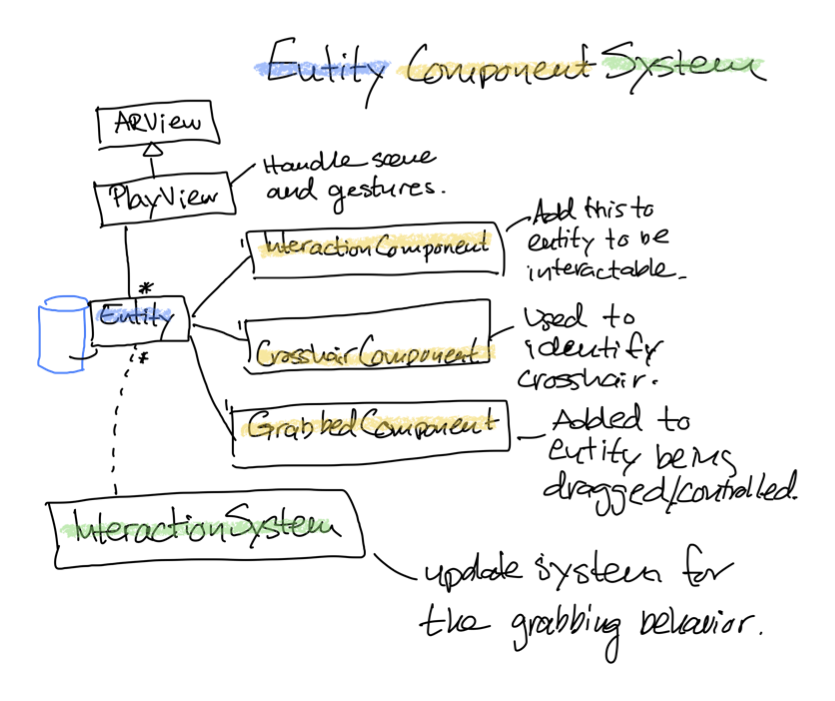 Entity Component System
ARView
PlayView
Handle scene
and gestures.
1
InteractionComponent
Add this to
entity to be
interactable.
*
Entity
*
1
CrosshairComponent
Used to
identify
crosshair.
1
GrabbedComponent
Added to
entity being
dragged/controlled.
InteractionSystem
update system for
the grabbing behavior.